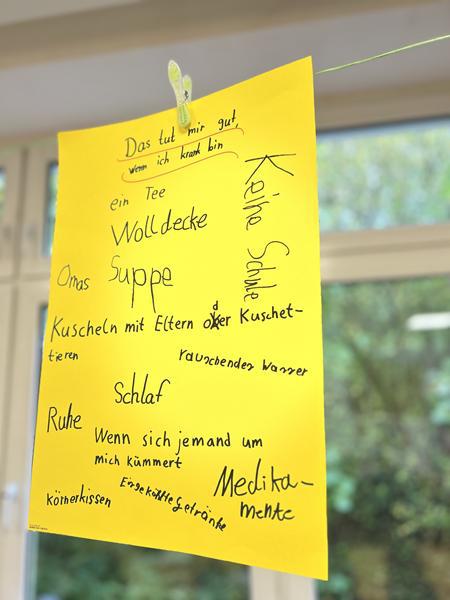 Das tut mir gut,
wenn ich krank bin
ein Tee
Wolldecke
Keine Schule
Omas Suppe
Kuscheln mit Eltern oder Kuschet-
tieren
rauschendes Wasser
Schlaf
Ruhe
Wenn sich jemand um
mich kümmert
Medika-
mente
Eingekühlte Getränke
Körnerkissen